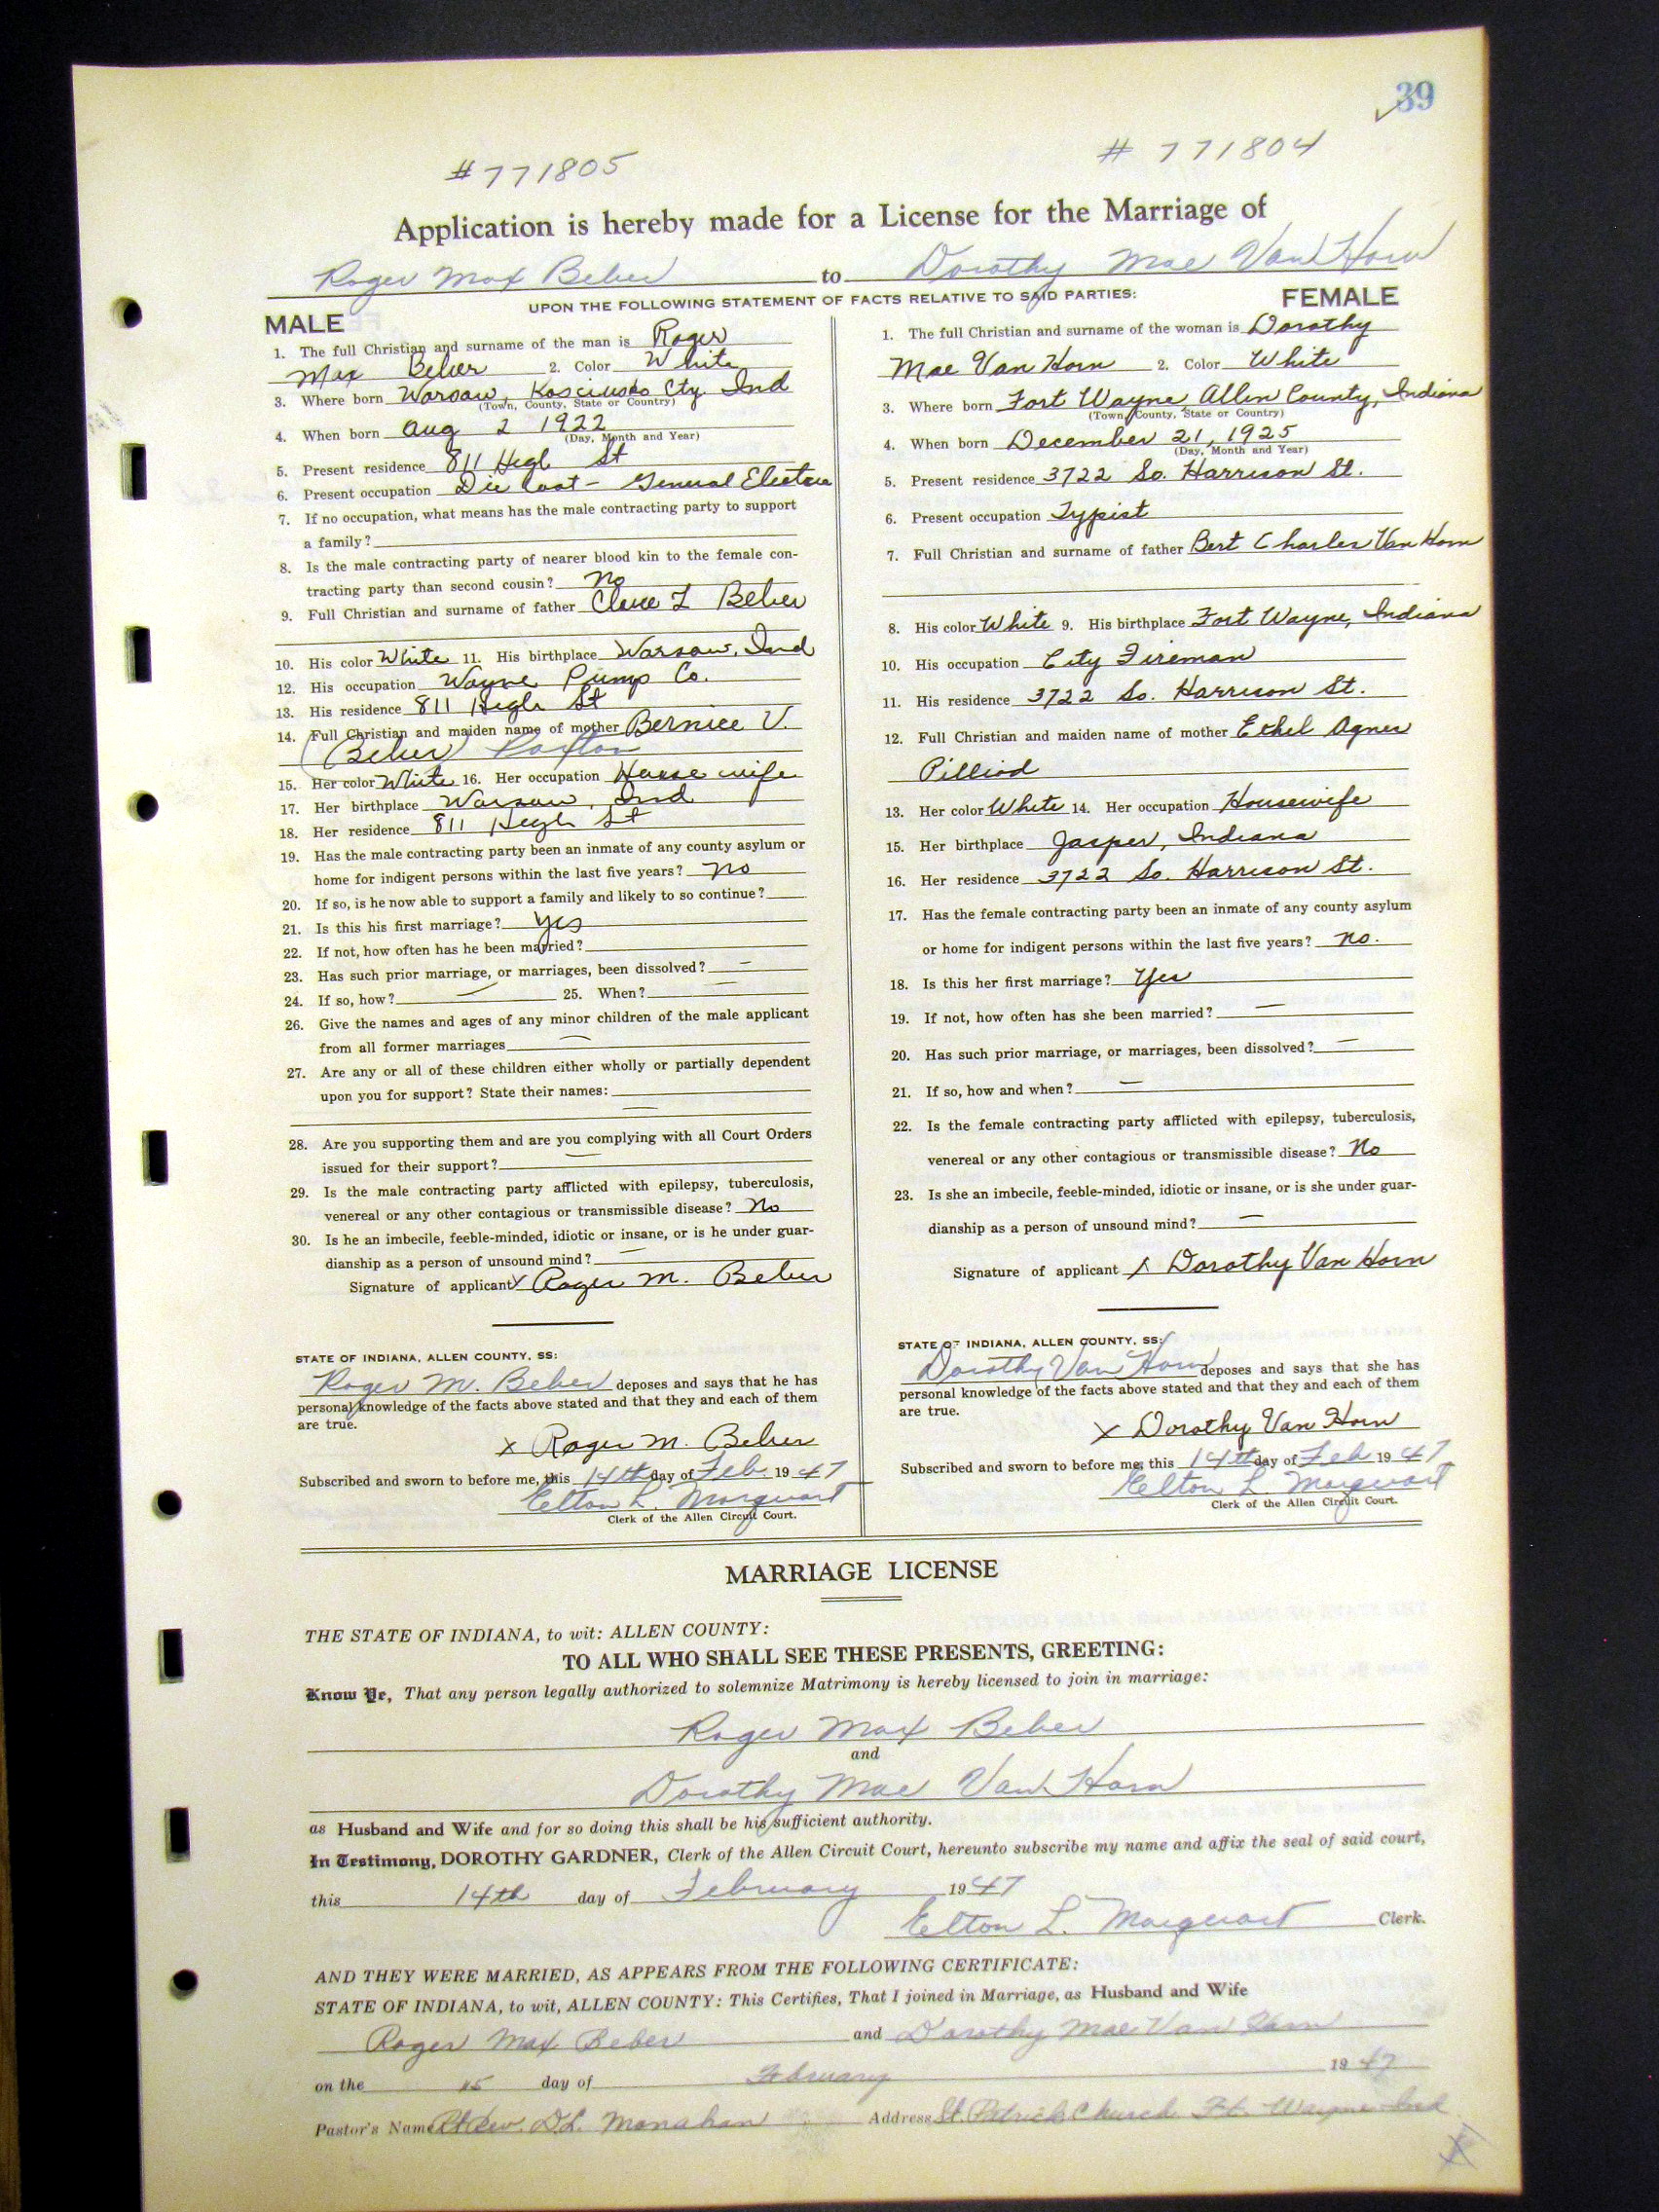 39
#771805
# 771804
Application is hereby made for a License for the Marriage of
Roger Max Beber to Dorothy Mae Van Horn
UPON THE FOLLOWING STATEMENT OF FACTS RELATIVE TO SAID PARTIES:
MALE
1. The full Christian and surname of the man is Roger
Max Beber 2. Color White
3. Where born Warsaw, Kosciusko Cty. Ind
(Town, County, State or Country)
4. When born Aug 2 1922
(Day, Month and Year)
5. Present residence 811 High St
6. Present occupation Die Cast - General Electric
7. If no occupation, what means has the male contracting party to support
a family?
8. Is the male contracting party of nearer blood kin to the female con-
tracting party than second cousin? No
9. Full Christian and surname of father L Beber
10. His color White 11. His birthplace Warsaw, Ind
12. His occupation Wayne Pump Co.
13. His residence 811 High St
14. Full Christian and maiden name of mother Bernice V.
(Beber) Paxton
15. Her color White 16. Her occupation House wife
17. Her birthplace Warsaw, Ind
18. Her residence 811 High St
19. Has the male contracting party been an inmate of any county asylum or
home for indigent persons within the last five years? No
20. If so, is he now able to support a family and likely to so continue?
21. Is this his first marriage? Yes
22. If not, how often has he been married?
23. Has such prior marriage, or marriages, been dissolved? —
24. If so, how? — 25. When? —
26. Give the names and ages of any minor children of the male applicant
from all former marriages —
27. Are any or all of these children either wholly or partially dependent
upon you for support? State their names:
—
28. Are you supporting them and are you complying with all Court Orders
issued for their support? —
29. Is the male contracting party afflicted with epilepsy, tuberculosis,
venereal or any other contagious or transmissible disease? No
30. Is he an imbecile, feeble-minded, idiotic or insane, or is he under guar-
dianship as a person of unsound mind? —
Signature of applicant X Roger M. Beber
STATE OF INDIANA, ALLEN COUNTY, SS:
Roger M. Beber deposes and says that he has
personal knowledge of the facts above stated and that they and each of them
are true.
X Roger M. Beber
Subscribed and sworn to before me, this 14th day of Feb. 1947
Elton L. Marquart
Clerk of the Allen Circuit Court.
FEMALE
1. The full Christian and surname of the woman is Dorothy
Mae Van Horn 2. Color White
3. Where born Fort Wayne Allen County, Indiana
(Town, County, State or Country)
4. When born December 21, 1925
(Day, Month and Year)
5. Present residence 3722 So. Harrison St.
6. Present occupation Typist
7. Full Christian and surname of father Bert Charles Van Horn
8. His color White 9. His birthplace Fort Wayne, Indiana
10. His occupation City Fireman
11. His residence 3722 So. Harrison St.
12. Full Christian and maiden name of mother Ethel Agnes
Pilliod
13. Her color White 14. Her occupation Housewife
15. Her birthplace Jasper, Indiana
16. Her residence 3722 So. Harrison St.
17. Has the female contracting party been an inmate of any county asylum
or home for indigent persons within the last five years? No.
18. Is this her first marriage? Yes
19. If not, how often has she been married? —
20. Has such prior marriage, or marriages, been dissolved? —
21. If so, how and when? —
22. Is the female contracting party afflicted with epilepsy, tuberculosis,
venereal or any other contagious or transmissible disease? No
23. Is she an imbecile, feeble-minded, idiotic or insane, or is she under guar-
dianship as a person of unsound mind? —
Signature of applicant X Dorothy Van Horn
STATE OF INDIANA, ALLEN COUNTY, SS:
Dorothy Van Horn deposes and says that she has
personal knowledge of the facts above stated and that they and each of them
are true.
X Dorothy Van Horn
Subscribed and sworn to before me, this 14th day of Feb 1947
Elton L. Marquart
Clerk of the Allen Circuit Court.
MARRIAGE LICENSE
THE STATE OF INDIANA, to wit: ALLEN COUNTY:
TO ALL WHO SHALL SEE THESE PRESENTS, GREETING:
Know Ye, That any person legally authorized to solemnize Matrimony is hereby licensed to join in marriage:
Roger Max Beber
and
Dorothy Mae Van Horn
as Husband and Wife and for so doing this shall be his sufficient authority.
In Testimony, DOROTHY GARDNER, Clerk of the Allen Circuit Court, hereunto subscribe my name and affix the seal of said court,
this 14th day of February 1947
Elton L. Marquart Clerk.
AND THEY WERE MARRIED, AS APPEARS FROM THE FOLLOWING CERTIFICATE:
STATE OF INDIANA, to wit, ALLEN COUNTY: This Certifies, That I joined in Marriage, as Husband and Wife
Roger Max Beber and Dorothy Mae Van Horn
on the 15 day of February 1947
Pastor's Name Rt. Rev. D.L. Monahan Address St. Patrick Church Ft. Wayne Ind